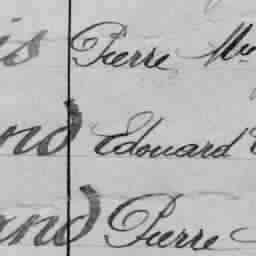 is Pierre
nd Edouard
and Pierre